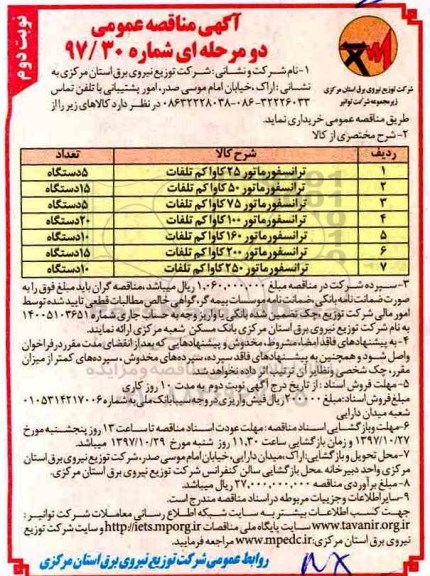 نوبت دوم
آگهی مناقصه عمومی
دو مرحله ای شماره ۹۷/۳۰
شرکت توزیع نیروی برق استان مرکزی
زیرمجموعه شرکت توانیر
۱-نام شرکت و نشانی: شرکت توزیع نیروی برق استان مرکزی به
نشانی: اراک،خیابان امام موسی صدر، امور پشتیبانی با تلفن تماس
۳۲۲۲۶۰۳۳-۰۸۶-۰۸۶۳۲۲۲۸۰۳۸ در نظر دارد کالاهای زیر را از
طریق مناقصه عمومی خریداری نماید.
۲-شرح مختصری از کالا
ردیف شرح کالا تعداد
۱ ترانسفورماتور ۲۵ کاوا کم تلفات ۵دستگاه
۲ ترانسفورماتور ۵۰ کاوا کم تلفات ۱۵دستگاه
۳ ترانسفورماتور ۷۵ کاوا کم تلفات ۵دستگاه
۴ ترانسفورماتور ۱۰۰ کاوا کم تلفات ۲۰دستگاه
۵ ترانسفورماتور ۱۶۰ کاوا کم تلفات ۱۰دستگاه
۶ ترانسفورماتور ۲۰۰ کاوا کم تلفات ۱۵دستگاه
۷ ترانسفورماتور ۲۵۰ کاوا کم تلفات ۱۰دستگاه
۳-سپرده شرکت در مناقصه مبلغ ۱.۰۶۰.۰۰۰.۰۰۰ ریال میباشد،مناقصه گران باید مبلغ فوق را به
صورت ضمانت نامه بانکی،ضمانت نامه موسسات بیمه گر،گواهی خالص مطالبات قطعی تایید شده توسط
امور مالی شرکت توزیع،چک تضمین شده بانکی یا واریز وجه به حساب جاری شماره ۱۴۰۰۵۱۰۳۶۵۱
به نام شرکت توزیع نیروی برق استان مرکزی بانک مسکن شعبه مرکزی ارائه نمایند.
۴-به پیشنهادهای فاقد امضا،مشروط،مخدوش و پیشنهادهایی که بعد از انقضای مدت مقرر در فراخوان
واصل شود و همچنین به پیشنهادهای فاقد سپرده،سپرده‌های مخدوش،سپرده‌های کمتر از میزان
مقرر، چک شخصی و نظایر آن ترتیب اثر داده نخواهد شد.
۵-مهلت فروش اسناد: از تاریخ درج آگهی نوبت دوم به مدت ۱۰ روز کاری
مبلغ فروش اسناد: مبلغ ۲۰۰.۰۰۰ ریال فیش واریزی در وجه سیبا بانک ملی به شماره ۰۱۰۵۳۱۴۲۱۷۰۰۶
شعبه میدان دارایی
۶-مهلت و بازگشایی اسناد مناقصه: مهلت عودت اسناد مناقصه تا ساعت ۱۳ روز پنجشنبه مورخ
۱۳۹۷/۱۰/۲۷ و زمان بازگشایی ساعت ۱۱.۳۰ روز شنبه مورخ ۱۳۹۷/۱۰/۲۹ میباشد.
۷-محل تحویل و بازگشایی: اراک،میدان دارایی،خیابان امام موسی صدر،شرکت توزیع نیروی برق استان
مرکزی واحد دبیرخانه.محل بازگشایی سالن کنفرانس شرکت توزیع نیروی برق استان مرکزی.
۸-مبلغ برآوردی مناقصه ۲۷.۰۰۰.۰۰۰.۰۰۰ ریال میباشد.
۹-سایر اطلاعات و جزییات مربوطه در اسناد مناقصه مندرج است.
جهت کسب اطلاعات بیشتر به سایت شبکه اطلاع رسانی معاملات شرکت توانیر:
www.tavanir.org.ir سایت پایگاه ملی مناقصات http://iets.mporg.ir و سایت شرکت توزیع
نیروی برق استان مرکزی:www.mpedc.ir مراجعه فرمایید.
روابط عمومی شرکت توزیع نیروی برق استان مرکزی